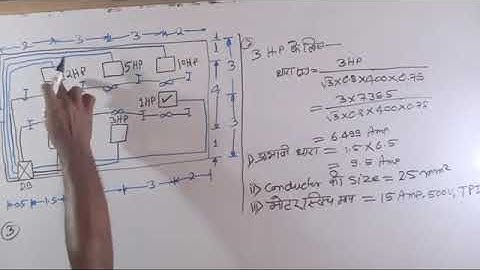 2 3 3 2
2HP 5HP 10HP
1
3
4
3
1HP
3HP
1
DB
0.5 1.5 3 3 2
③
② 3 H.P के लिए—
धारा (I) = 3HP
√3×0.8×400×0.75
= 3×735.5
√3×0.8×400×0.75
= 6.499 Amp
i) धारा = 1.5×6.5
= 9.5 Amp
ii) Conductor की Size = 25mm²
iii) मोटर स्विच = 15 Amp, 500V, TPI